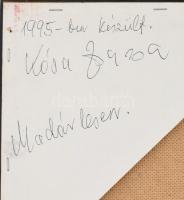 1995-ben készült.
Kósa Zsuzsa
Madárlesen.